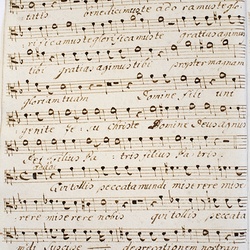 benedicimuste adoramuste glo
rificamuste glorificamuste gratias agimus
tibi gratias agimus tibi propter magnam
gloriam tuam Domine fili uni
genite Jesu Christe Domine Deus agnus
Dei filius Patris Patris.
Qui tollis peccata mundi miserere mise
rere miserere nobis qui tollis peccata
mundi suscipe deprecationem nostram